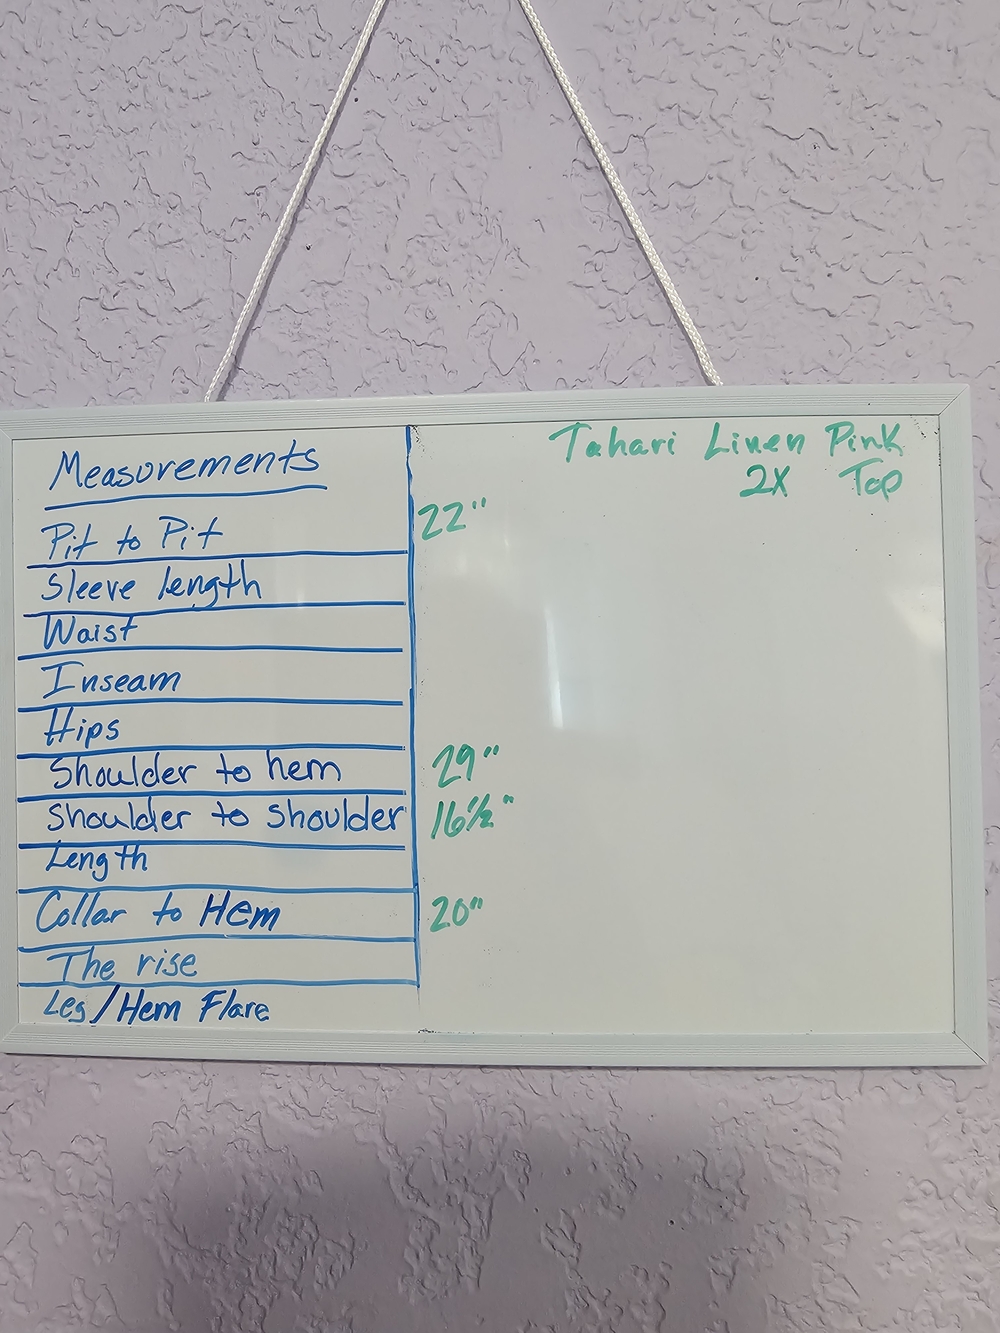 Measurements
Tahari Linen Pink
2X Top
Pit to Pit 22"
Sleeve length
Waist
Inseam
Hips
Shoulder to hem 29"
Shoulder to shoulder 16½"
Length
Collar to Hem 20"
The rise
Leg/Hem Flare